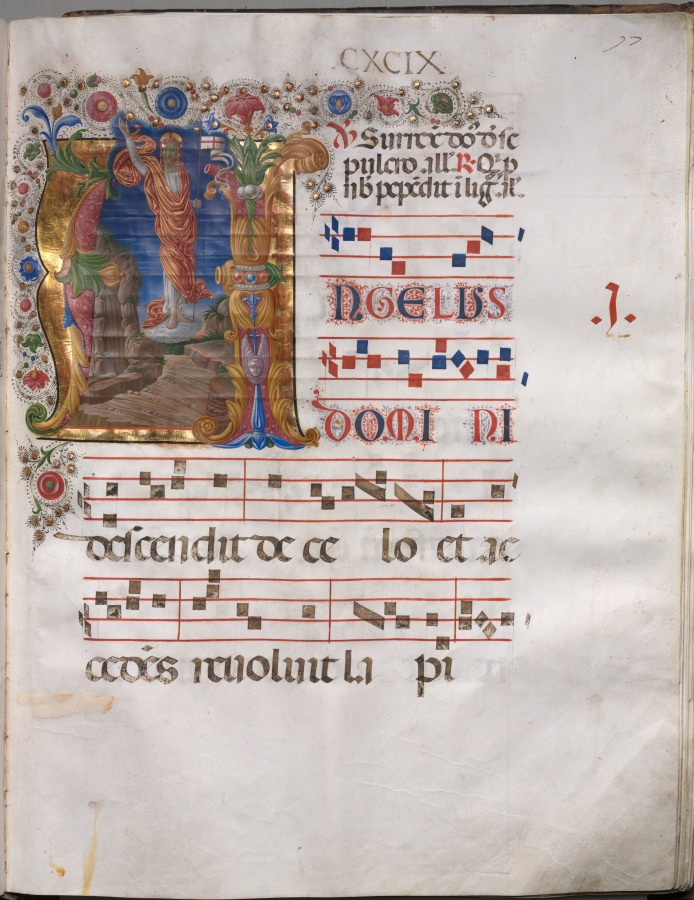 CXCIX
Surrex̄ dō de se
pulcro all R Q p
nb pepēdit i lig
NGELVS
.I.
DOMI NI
descendit de ce lo et ac
cedēs revoluit la pi